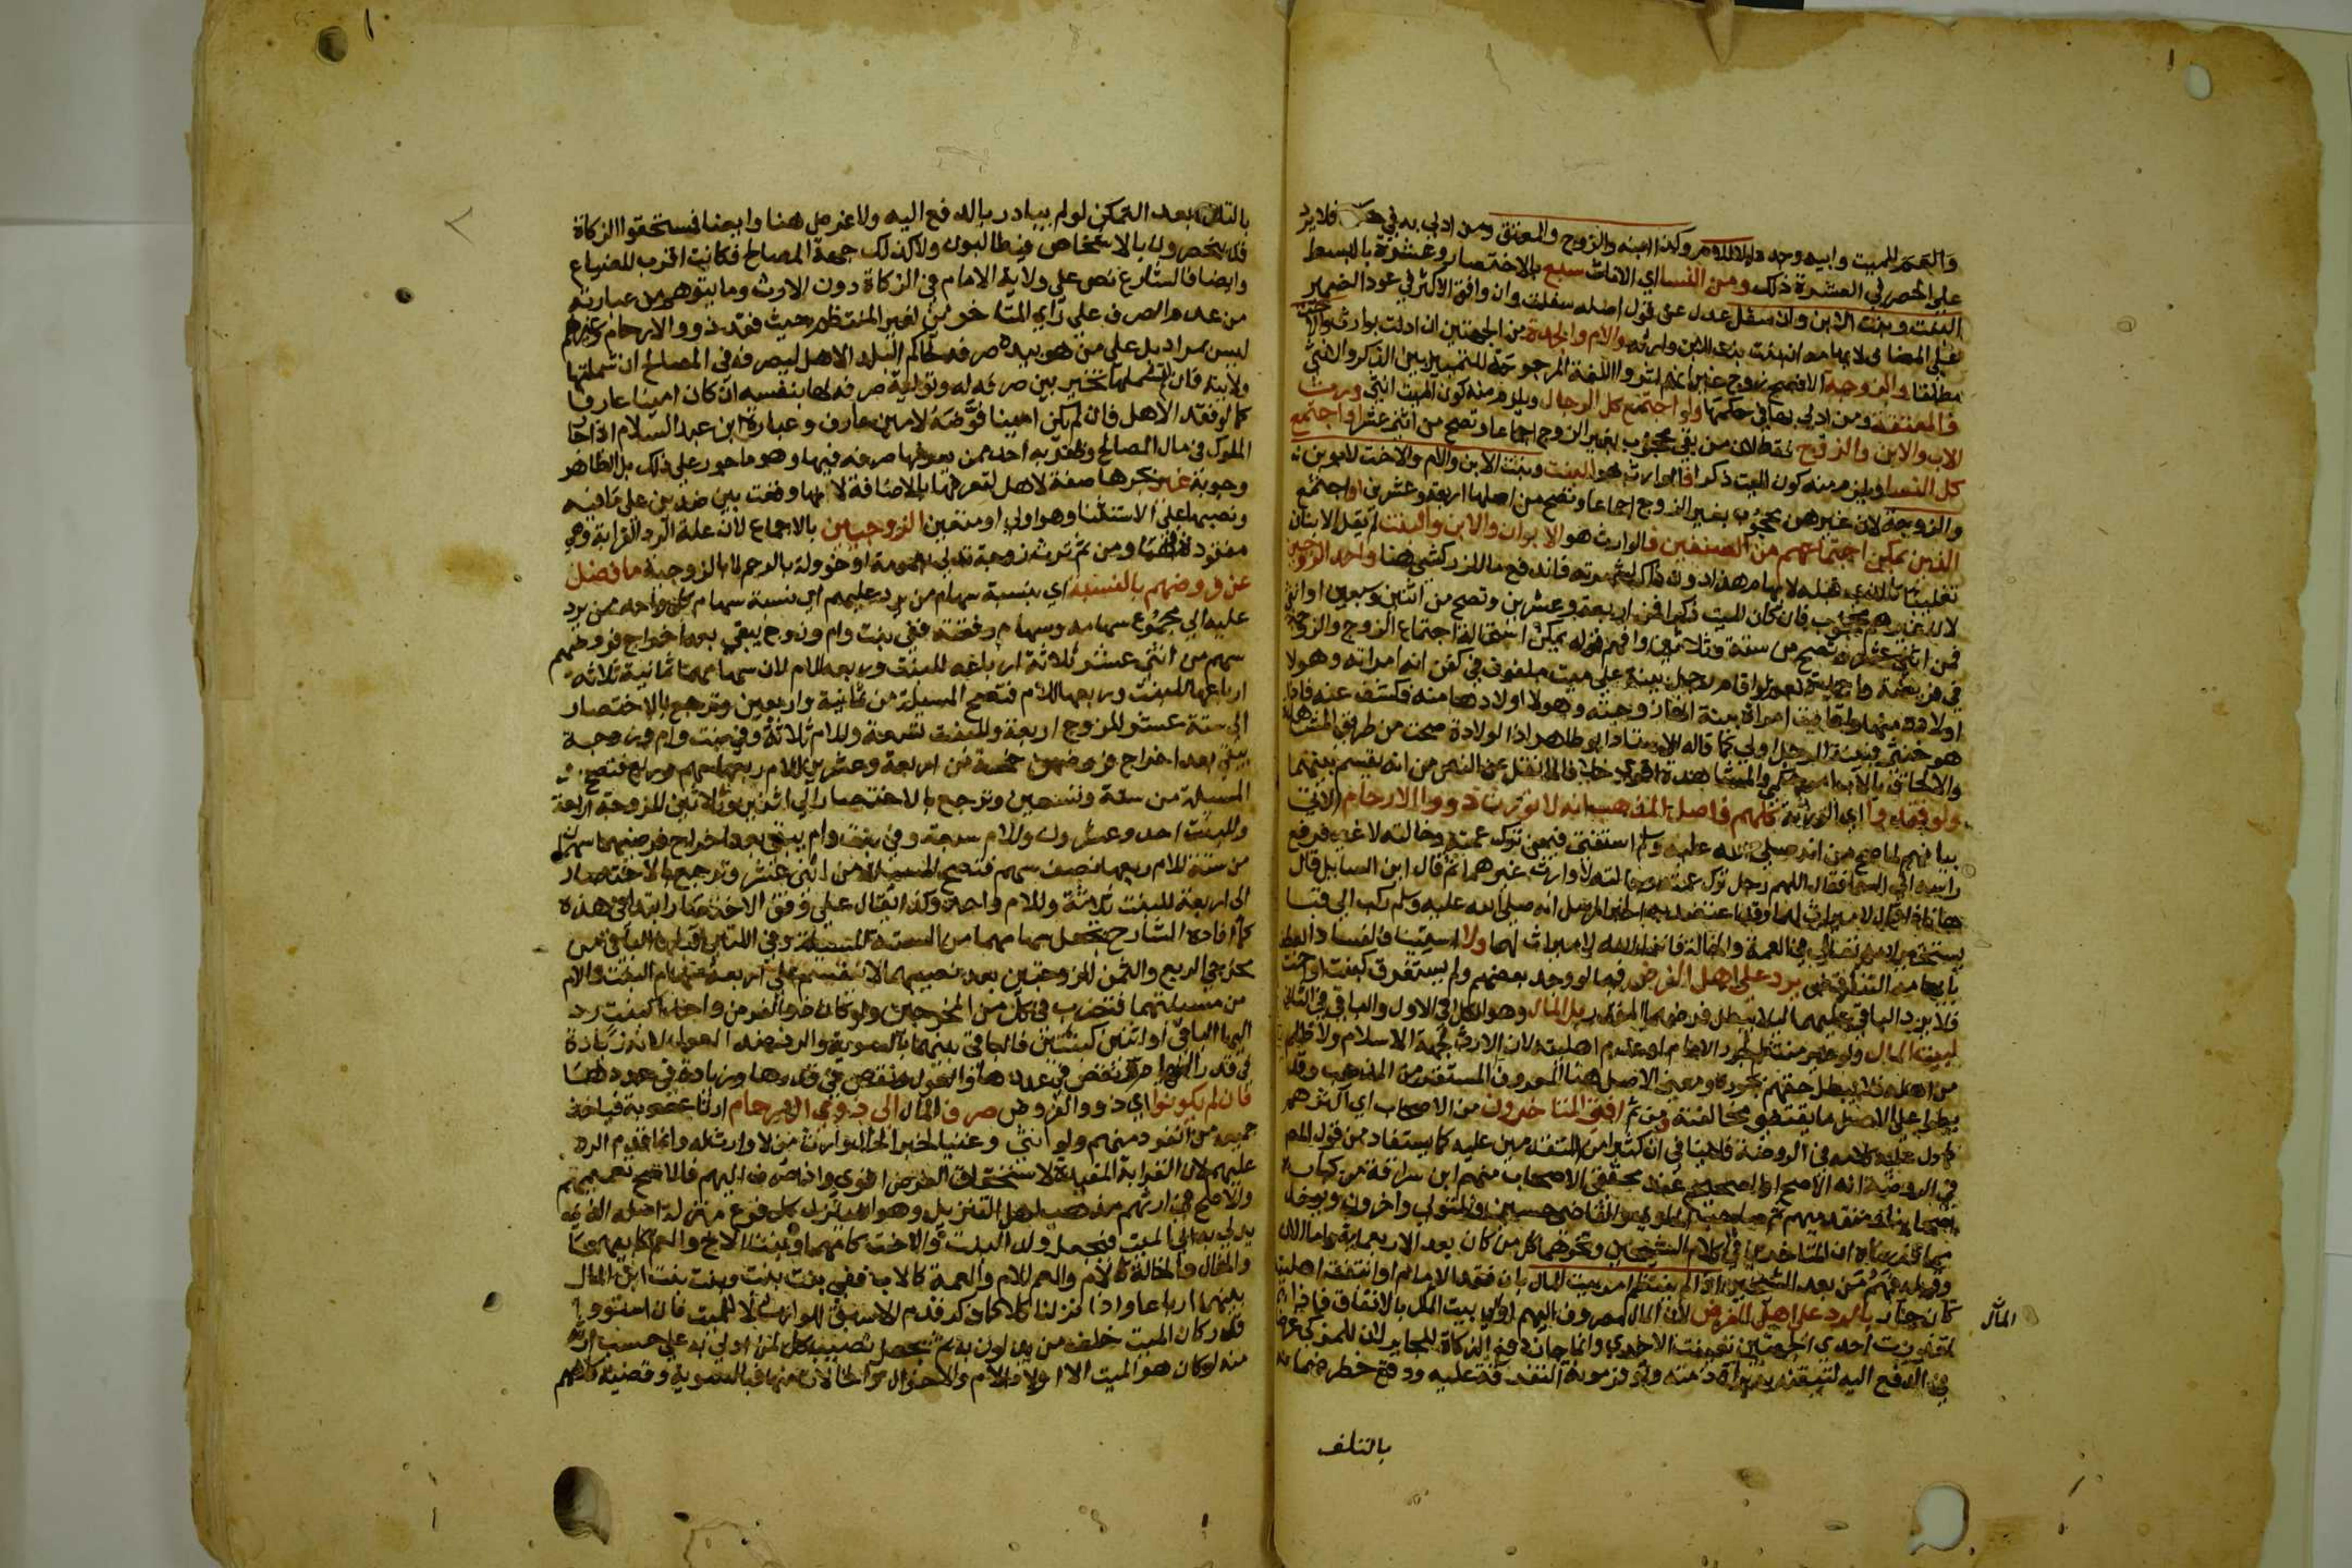 والعم للميت وابيه وجده لا للام وكذا ابنه والزوج والمعتق ومن ادلى به في فلا يرد
على الحصر في العشرة ذلك ومن النسا اي الاناث سبع بالاختصار وعشرة بالبسط
البنت وبنت الابن وان سفل عدل عن قول اصله سفلت وان وافق الاكثر في عود الضمير
على المضاف والام والجدة من الجهتين ان ادلت بوارث والاخت
مطلقا والزوجة الافصح زوج المرجوحة للتمييز بين الذكر والانثى
والمعتقة ومن ادلى بها في حكمها ولو اجتمع كل الرجال ويلزم منه كون الميت انثى ورث
الاب والابن والزوج فقط لان من بقي محجوب بغير الزوج اجماعا وتصح من اثني عشر او اجتمع
كل النسا ويلزم منه كون الميت ذكرا فالوارث هو البنت وبنت الابن والام والاخت لابوين
والزوجة لان غيرهن محجوب بغير الزوج اجماعا وتصح من اصلها اربعة وعشرين او اجتمع
الذين يمكن اجتماعهم من الصنفين فالوارث هو الابوان والابن والبنت لم يقل الابنان
تغليبا كالذي قبله فاندفع ما للزركشي هنا واحد الزوجين
لان غيرهم محجوب فان كان الميت ذكرا فمن اربعة وعشرين وتصح من اثنين وسبعين او انثى
فمن اثني عشر وتصح من ستة وثلاثين وافهم قوله يمكن استحالة اجتماع الزوج والزوجة
في فريضة لو اقام رجل بينة على ميت ملفوف في كفن انه امراته وهولا
اولاده منها واقامت امراة بينة انه زوجها وهولا اولادها منه فكشف عنه فاذا
هو خنثى فبينة الرجل اولى كما قاله الاستاذ ابو طاهر اذ الولادة صحت من طريق المشاهدة
والالحاق بالاب امر حكمي والمشاهدة اقوى خلافا لما نقل عن النص من انه يقسم بينهما
ولو فقدوا اي الورثة كلهم فاصل المذهب انه لا يورث ذوو الارحام الاتي
بيانهم لما صح من انه صلى الله عليه وسلم استفتي فيمن ترك عمته وخالته لا غير فرفع
راسه الى السما فقال اللهم رجل ترك عمته وخالته لا وارث غيرهما ثم قال اين السايل قال
هانذا قال لا ميراث لهما المرسل انه صلى الله عليه وسلم ركب الى قبا
يستخير الله تعالى في العمة والخالة فانزل الله لا ميراث لهما ولا استيفا لفساد
ما بعد التفريع يرد على اهل الفرض فيما لو وجد بعضهم ولم يستغرق كبنت او اخت
فلا يرد الباقي عليهما ليلا يبطل فرضهما المقدر بل المال وهو الكل في الاول والباقي في الثاني
لبيت المال وان لم ينتظم لجور الامام او عدم اهليته لان الارث لجهة الاسلام ولا ظلم
من اهله فلا يبطل حقهم بجوره ومعنى الاصل هنا المعروف المستقر من المذهب وقد
يطرا على الاصل ما يقتضي مخالفته ومن ثم افتى المتاخرون من الاصحاب اي اكثرهم
كما دل عليه كلامه في الروضة فلا ينافي ان كثيرا من المتقدمين عليه كما يستفاد من قول المص
في الروضة انه الاصح او الصحيح عند محققي الاصحاب منهم ابن سراقة من كبار
اصحابنا ومتقدميهم ثم صاحب الحاوي والقاضي حسين والمتولي واخرون ويوخذ
مما قدمناه ان المتاخرين في كلام الشيخين ونحوهما كل من كان بعد الاربعماية واما الان
وقبله فهم من بعد الشيخين اذا لم ينتظم امر بيت المال بان فقد الامام او انتفت اهليته
كان جار بالرد على اهل الفرض لان المال مصروف اليهم او الى بيت المال بالاتفاق فاذا
تعذرت احدى الجهتين تعينت الاخرى وانما جاز دفع الزكاة للجاير لان للمزكي غرضا
في الدفع اليه لتيقنه به براءة ذمته وتوفر مونة التفرقة عليه ودفع خطر ضمانه
المال
بالتلف
بالتلف بعد التمكن لو لم يبادر بالدفع اليه ولا غرض هنا وايضا فمستحقوا الزكاة
قد ينحصرون بالاشخاص فيطالبون ولا كذلك جهة المصالح فكانت اقرب للضياع
وايضا فالشارع نص على ولاية الامام في الزكاة دون الارث وما يتوهم من عبارته
من عدم الصرف على راي المتاخرين لغير المنتظم حيث فقد ذوو الارحام وغيرهم
ليس بمراد بل على من هو بيده صرفه لحاكم البلد الاهل ليصرفه في المصالح ان شملتها
ولايته فان لم يشملها تخير بين صرفه له وتولية صرفه لها بنفسه ان كان امينا عارفا
كما لو فقد الاهل فان لم يكن امينا فوضه لامين عارف وعبارة ابن عبد السلام اذا جار
الملوك في مال المصالح وظفر به احد ممن يعرفها صرفه فيها وهو ماجور على ذلك بل الظاهر
وجوبه غير بجرها صفة لاهل لتعرفها بالاضافة لانها وقعت بين ضدين على ما فيه
ونصبها على الاستثنا وهو اولى او متعين الزوجين بالاجماع لان علة الرد القرابة وهي
مفقودة فيهما ومن ثم ترث زوجة تدلي بعمومة او خوولة بالرحم لا بالزوجية ما فضل
عن فروضهم بالنسبة اي بنسبة سهام من يرد عليهم اي نسبة سهام كل واحد ممن يرد
عليه الى مجموع سهامه وسهام رفقته ففي بنت وام وزوج يبقى بعد اخراج فروضهم
سهم من اثني عشر ثلاثة ارباعه للبنت وربعه للام لان سهامهما ثمانية ثلاثة
ارباعها للبنت وربعها للام فتصح المسيلة من ثمانية واربعين وترجع بالاختصار
الى ستة عشر للزوج اربعة وللبنت تسعة وللام ثلاثة وفي بنت وام وزوجة
يبقى بعد اخراج فروضهن خمسة من اربعة وعشرين للام ربعها سهم وربع فتصح
المسيلة من ستة وتسعين وترجع بالاختصار الى اثنين وثلاثين للزوجة اربعة
وللبنت احد وعشرون وللام سبعة وفي بنت وام يبقى بعد اخراج فرضهما سهمان
من ستة للام ربعهما نصف سهم فتصح المسيلة من اثني عشر وترجع بالاختصار
الى اربعة للبنت ثلاثة وللام واحد وكذا يقال على وفق الاختصار ابتدا في هذه
كما افاده الشارح تجعل سهامهما من الستة المسيلة وفي اللتين قبلها الباقي من
مخرجي الربع والثمن للزوجين بعد نصيبهما لا ينقسم على اربعة سهام البنت والام
من مسيلتهما فتضرب في كل من المخرجين ولو كان ذو الفرض واحدا كبنت رد
اليها الباقي او اثنين كبنتين فالباقي بينهما بالسوية والرد ضد العول لانه زيادة
في قدر السهام ونقص في عددها والعول نقص في قدرها وزيادة في عددها
فان لم يكونوا اي ذوو الفروض صرف المال الى ذوي الارحام ارثا عصوبة فياخذ
جميعه من انفرد منهم ولو انثى وغنيا لخبر الخال وارث من لا وارث له وانما تقدم الرد
عليهم لان القرابة المفيدة لاستحقاق الفرض اقوى واذا صرف اليهم فالاصح تعميمهم
والاصح في ارثهم مذهب اهل التنزيل وهو ان ينزل كل فرع منزلة اصله الذي
يدلي به الى الميت فيجعل ولد البنت والاخت كامهما وبنت الاخ والعم كابيهما
والخال والخالة كالام والعم للام والعمة كالاب ففي بنت بنت وبنت بنت ابن المال
بينهما ارباعا واذا نزلنا كلا كما ذكر قدم الاسبق للوارث لا للميت فان استووا
قدر كان الميت خلف من يدلون به ثم يجعل نصيب كل لمن ادلى به على حسب ارثه
منه لو كان هو الميت الا اولاد الام والاخوال والخالات منها فبالسوية وقضية كلامهم